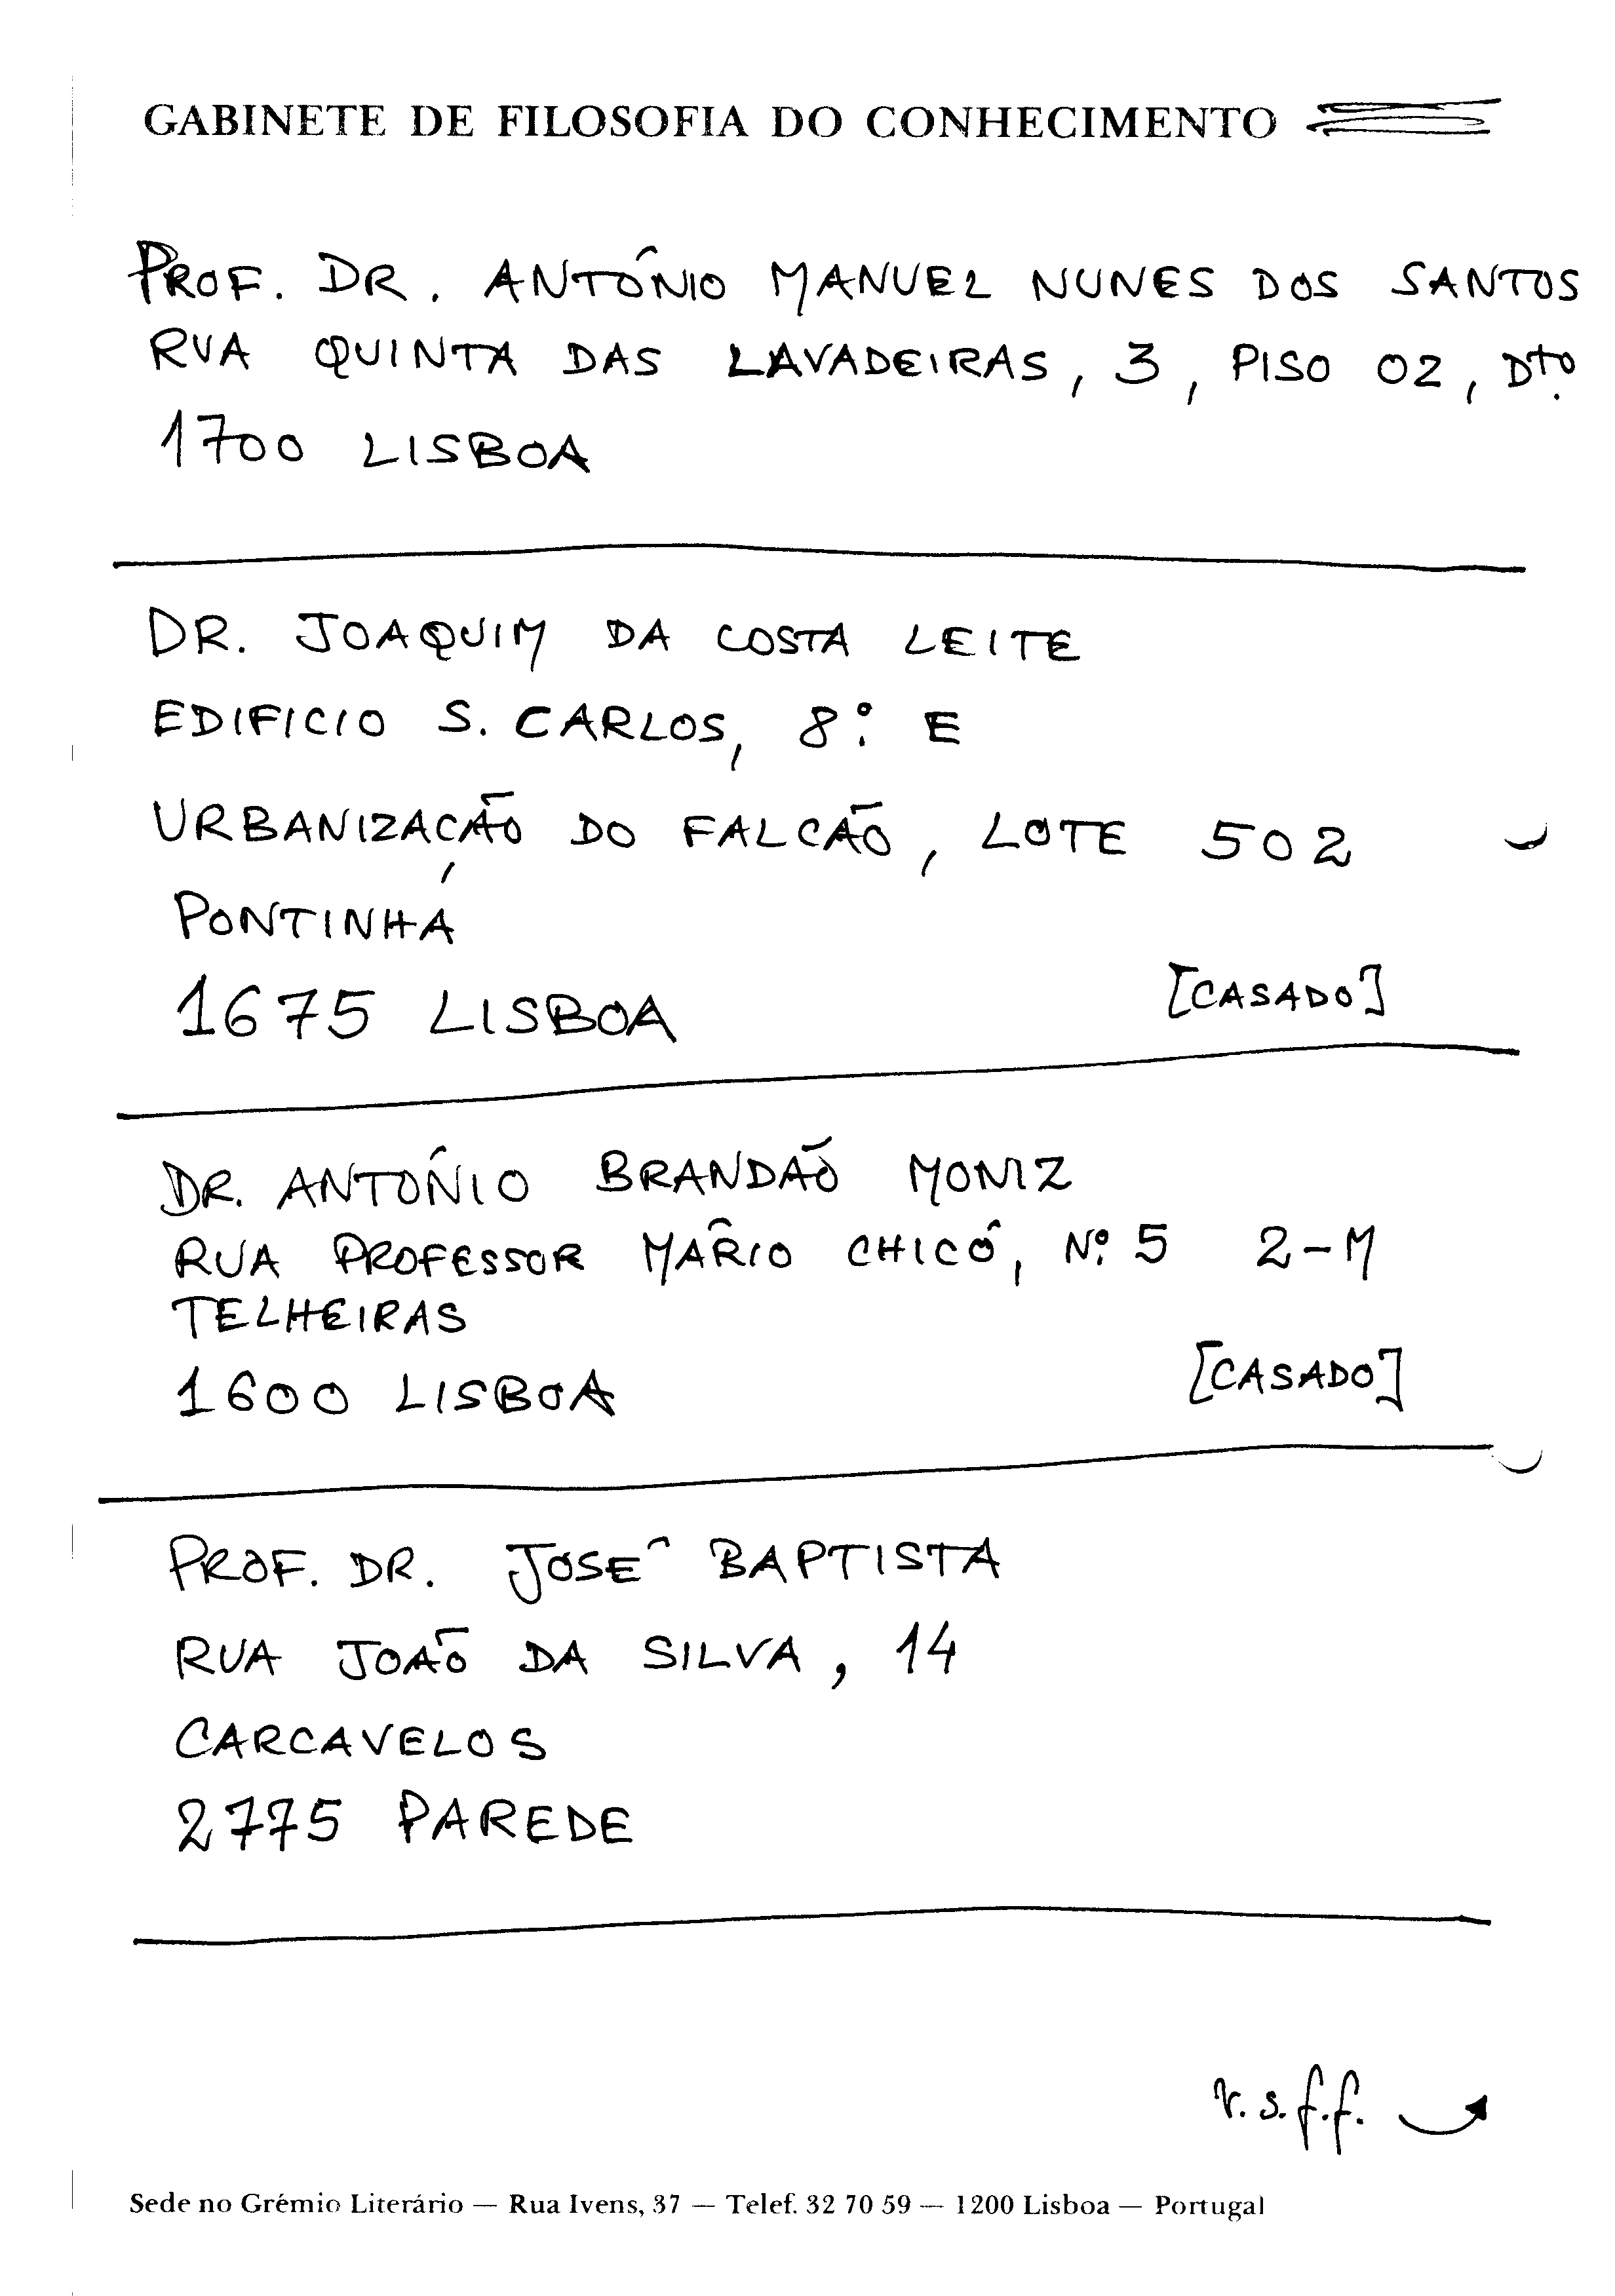 GABINETE DE FILOSOFIA DO CONHECIMENTO
PROF. DR. ANTÓNIO MANUEL NUNES DOS SANTOS
RUA QUINTA DAS LAVADEIRAS, 3, PISO 02, Dto.
1700 LISBOA
DR. JOAQUIM DA COSTA LEITE
EDIFICIO S. CARLOS, 8º E
URBANIZAÇÃO DO FALCÃO, LOTE 502
PONTINHA
1675 LISBOA [CASADO]
DR. ANTÓNIO BRANDÃO MONIZ
RUA PROFESSOR MÁRIO CHICÓ, Nº 5 2-M
TELHEIRAS
1600 LISBOA [CASADO]
PROF. DR. JOSÉ BAPTISTA
RUA JOÃO DA SILVA, 14
CARCAVELOS
2775 PAREDE
v.s.f.f.
Sede no Grémio Literário — Rua Ivens, 37 — Telef. 32 70 59 — 1200 Lisboa — Portugal